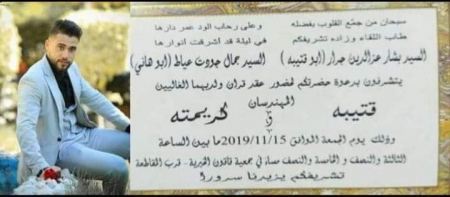 سبحان من جمع القلوب بفضله وعلى رحاب الود عمر دارها
طاب اللقاء وزاده تشريفكم في ليلة قد اشرقت أنوارها
السيد بشار عزالدين جرار (ابو قتيبه) السيد جمال جودت عياط (ابو هاني)
يتشرفون بدعوة حضرتكم لحضور عقد قران ولديهما الغاليين
المهندسان
قتيبه و كريمته
وذلك يوم الجمعة الموافق 2019/11/15 ما بين الساعة
الثالثة والنصف و الخامسة والنصف مساء في جمعية قانون الخيرية - قرب المقاطعة
تشريفكم يزيدنا سرورا